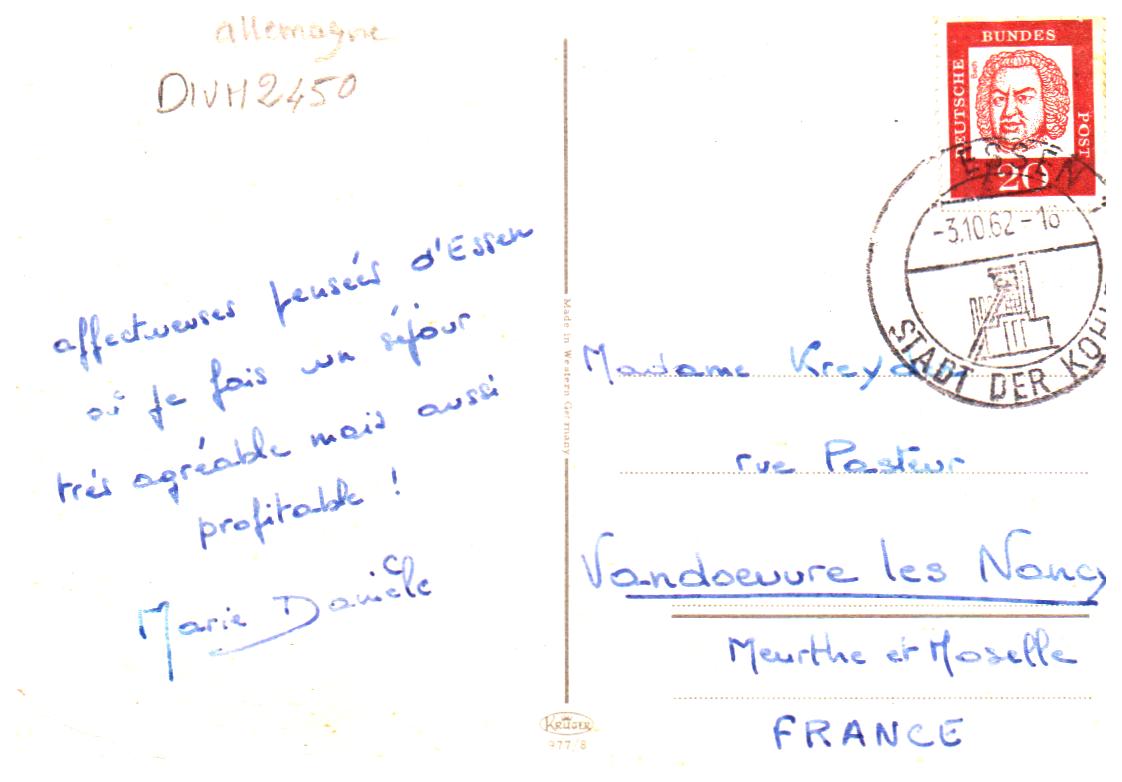 allemagne
DIVH2450
affectueuses pensées d'Essen
où je fais un séjour
très agréable mais aussi
profitable !
Marie Danièle
Made in Western Germany
KRÜGER
977/8
DEUTSCHE
BUNDES
POST
Bach
20
ESSEN
-3.10.62-18
STADT DER KOHL
Madame
rue Pasteur
Vandoeuvre les Nancy
Meurthe et Moselle
FRANCE